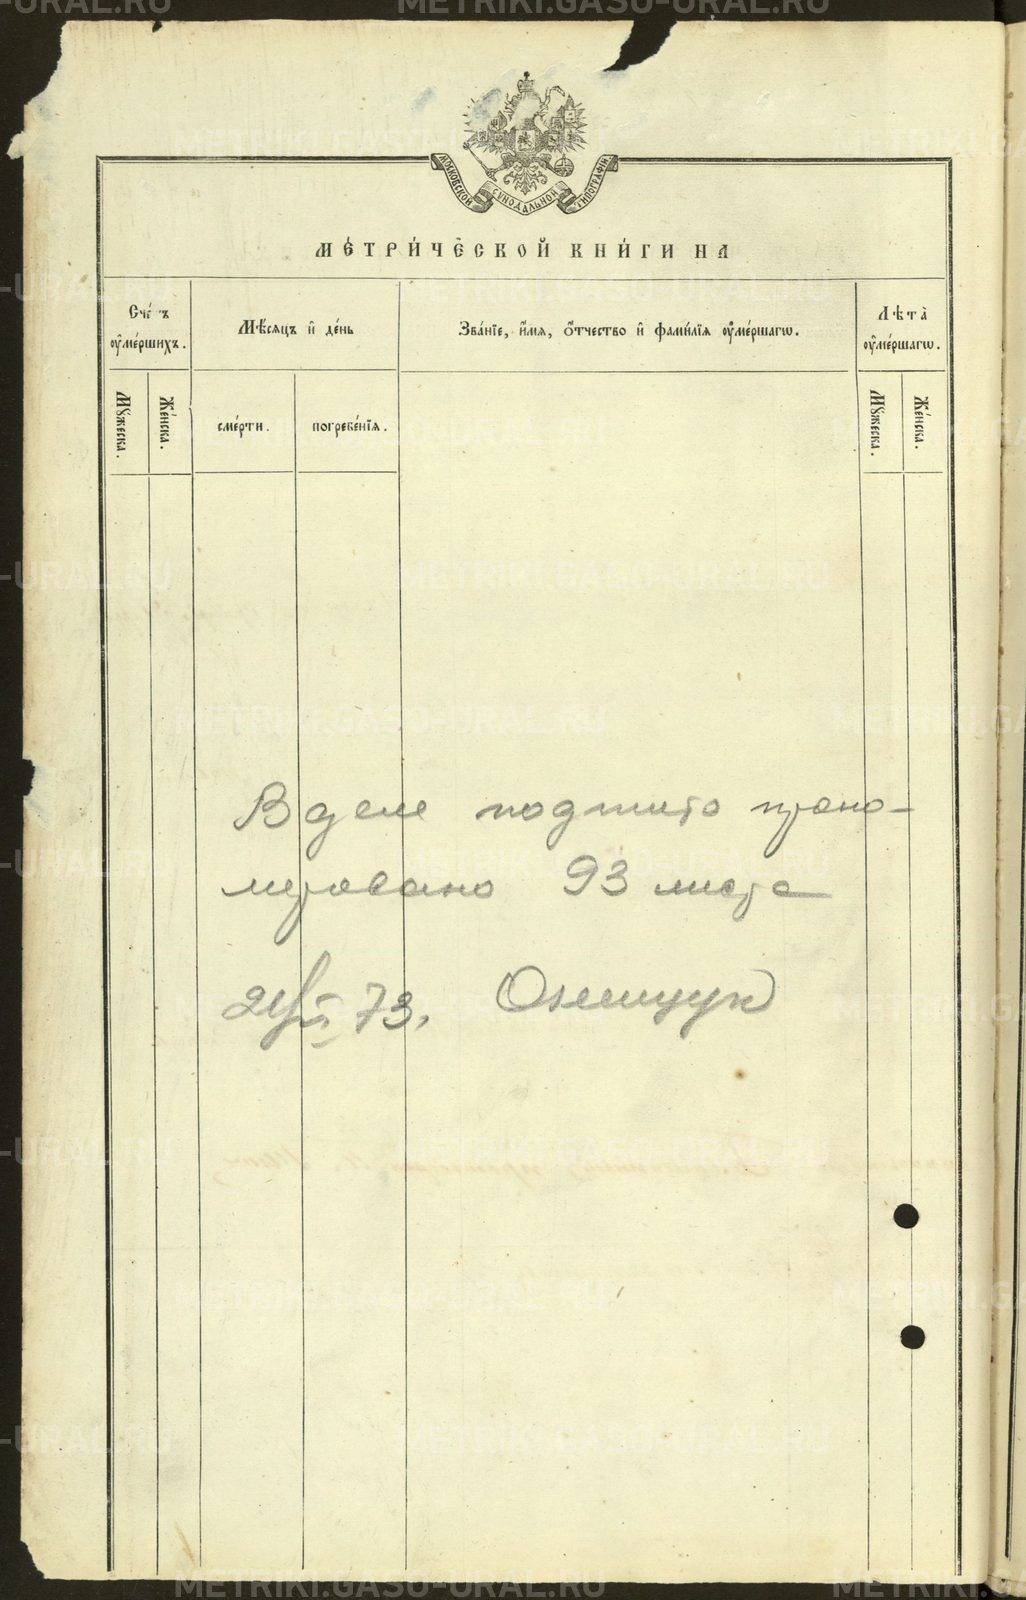 МОСКОВСКОЙ СУНОДАЛЬНОЙ ТИПОГРАФІИ
МЕ́ТРИ́ЧЕСКОЙ КНИ́ГИ НА
Сче́тъ ᲂу҆ме́ршихъ.
Мѣ́сяцъ и҆ де́нь
Зва́нїе, и҆́мя, ѻ҆́тчество и҆ фами́лїя ᲂу҆ме́ршагѡ.
Лѣ̀та ᲂу҆ме́ршагѡ.
Мꙋ́жеска.
Же́нска.
сме́рти.
погребе́нїя.
Мꙋ́жеска.
Же́нска.
В деле подшито прону-
меровано 93 листа
73.
METRIKI.GASO-URAL.RU